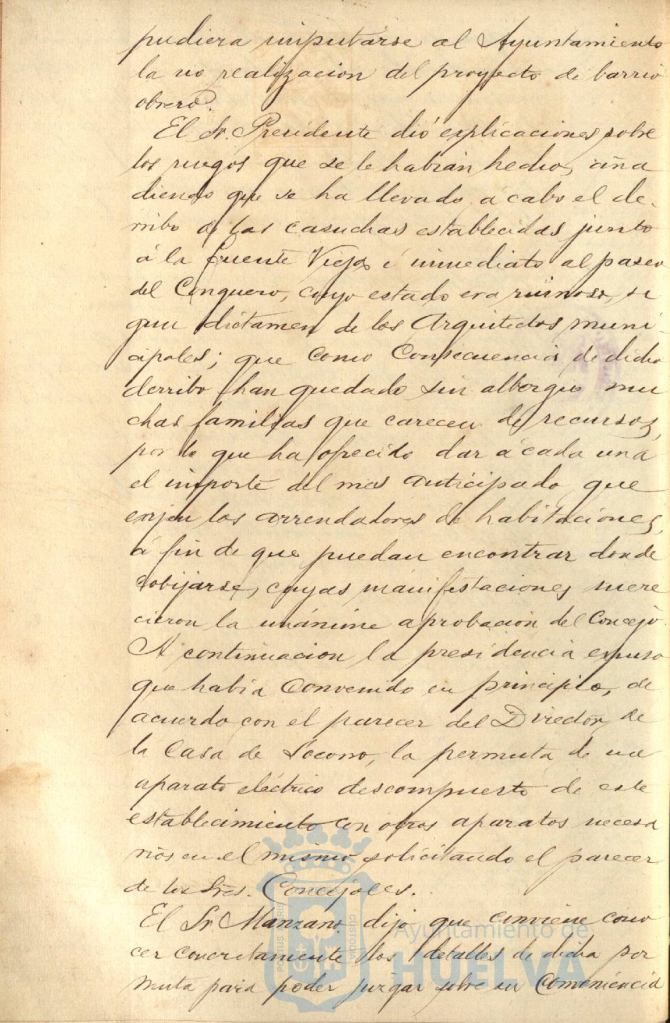 pudiera imputarse al Ayuntamiento
la no realizacion del proyecto de barrio
obrero.
El Sr. Presidente dió explicaciones sobre
los ruegos que se le habian hecho, aña
diendo que se ha llevado a cabo el de-
rribo de las casuchas establecidas junto
á la Fuente Vieja é inmediato al paseo
del Conquero, cuyo estado era ruinoso, se
gun dictámen de los Arquitectos muni-
cipales; que como consecuencia de dicho
derribo han quedado sin albergue mu
chas familias que carecen de recursos,
por lo que ha ofrecido dar á cada una
el importe del mes anticipado que
exijen los arrendadores de habitaciones,
á fin de que puedan encontrar donde
cobijarse, cuyas manifestaciones mere
cieron la unánime aprobacion del Concejo.
A continuacion la presidencia expuso
que habia convenido en principio, de
acuerdo con el parecer del Director de
la Casa de Socorro, la permuta de un
aparato eléctrico descompuesto de este
establecimiento con otros aparatos necesa
rios en el mismo, solicitando el parecer
de los Sres. Concejales.
El Sr Manzano dijo que conviene cono
cer concretamente los detalles de dicha per
muta para poder juzgar sobre su conveniencia
Ayuntamiento de
HUELVA